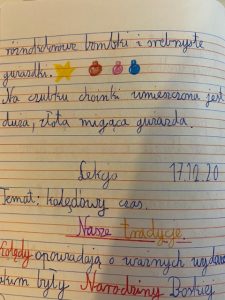 różnokolorowe bombki i srebrzyste
gwiazdki.
Na czubku choinki umieszczona jest
duża, złota migąca gwiazda.
Lekcja 17.12.20
Temat: kolędowy czas.
Nasze tradycje
Kolędy opowiadają o ważnych wydarze
akim były Narodziny Boskiej